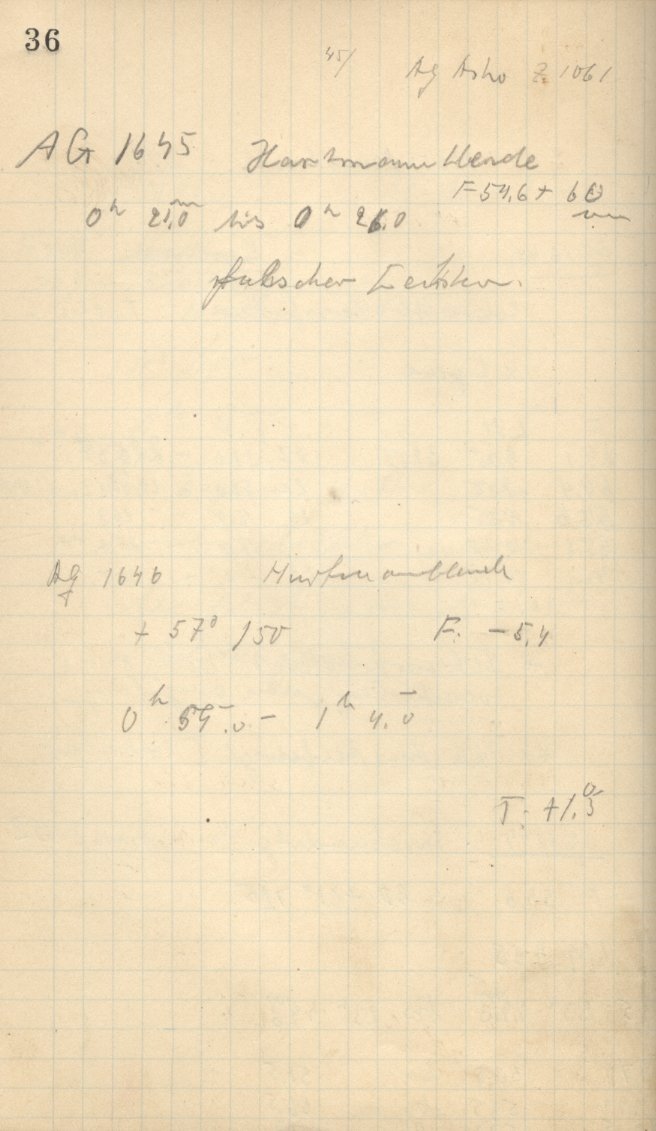 36
45/ Ag Astro Z 1061
AG 1645 Hartmannblende
F = 54,6 + 60
0h 21,0m bis 0h 26.0
falscher
Ag 1646 Hartmannblende
+ 57° 150 F: - 5,4
0h 54.0 - 1h 4.0
T: +1.°3